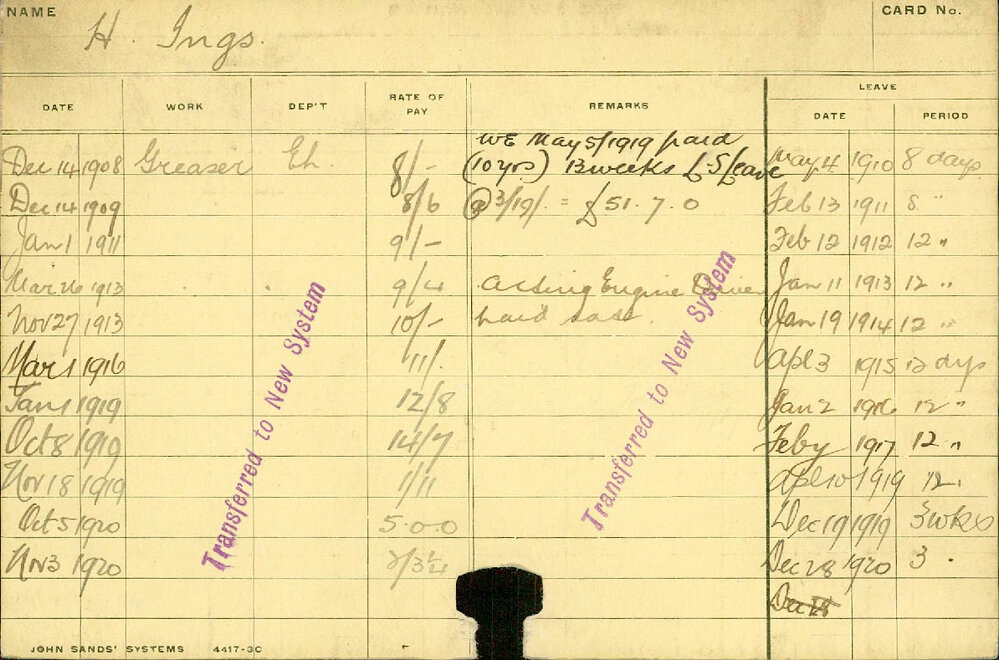 NAME H. Ings. CARD No.
LEAVE
DATE WORK DEP'T RATE OF PAY REMARKS DATE PERIOD
WE May 5/1919 paid
Dec 14 1908 Greaser Eh. 8/- (10 yrs) 13 weeks L.S. Leave May 4 1910 8 days
Dec 14 1909 8/6 @ 3/19/- = £51.7.0 Feb 13 1911 8 "
Jan 1 1911 9/- Feb 12 1912 12 "
Mar 26 1913 9/4 Acting Engine Driver Jan 11 1913 12 "
Nov 27 1913 10/- Jan 19 1914 12 "
Mar 1 1916 11/. Apl 3 1915 12 dys
Jan 1 1919 12/8 Jan 2 1916 12 "
Oct 8 1919 14/7 Feby 1917 12 "
Nov 18 1919 1/11 Apl 10 1919 12.
Oct 5 1920 5.0.0 Dec 19 1919 3 wks
Nov 3 1920 Dec 28 1920 3 "
Transferred to New System
Transferred to New System
JOHN SANDS' SYSTEMS 4417-3C